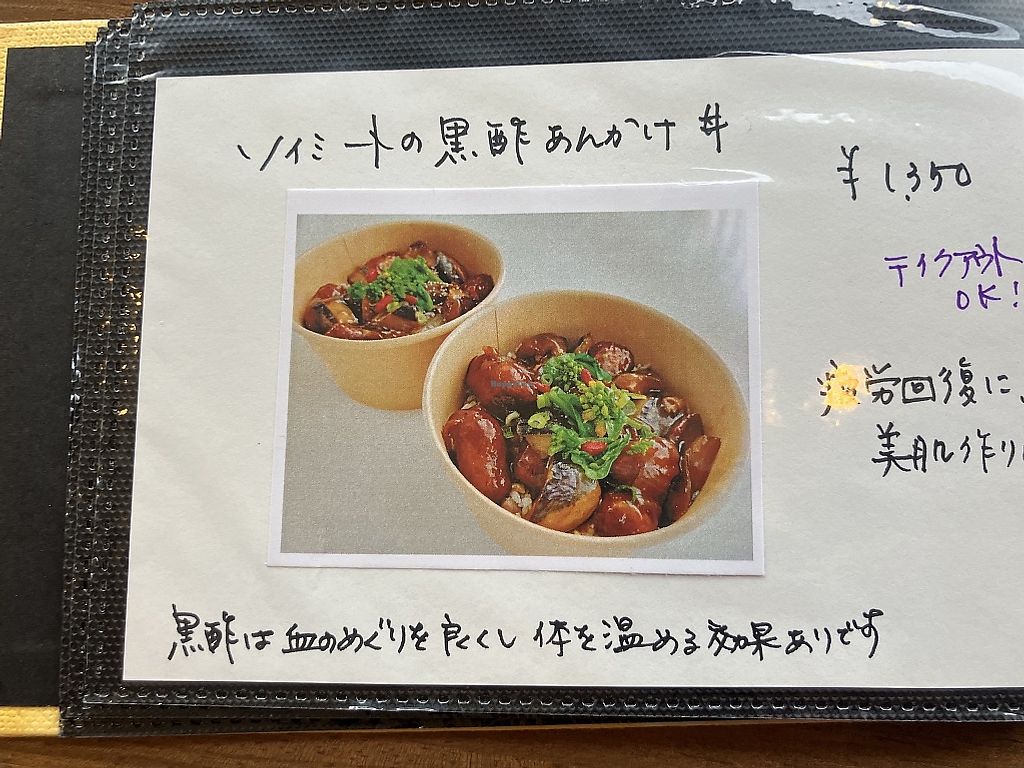 ソイミートの黒酢あんかけ丼
¥1,350
テイクアウト
OK!
労回復に、
美肌作り
黒酢は血のめぐりを良くし体を温める効果ありです